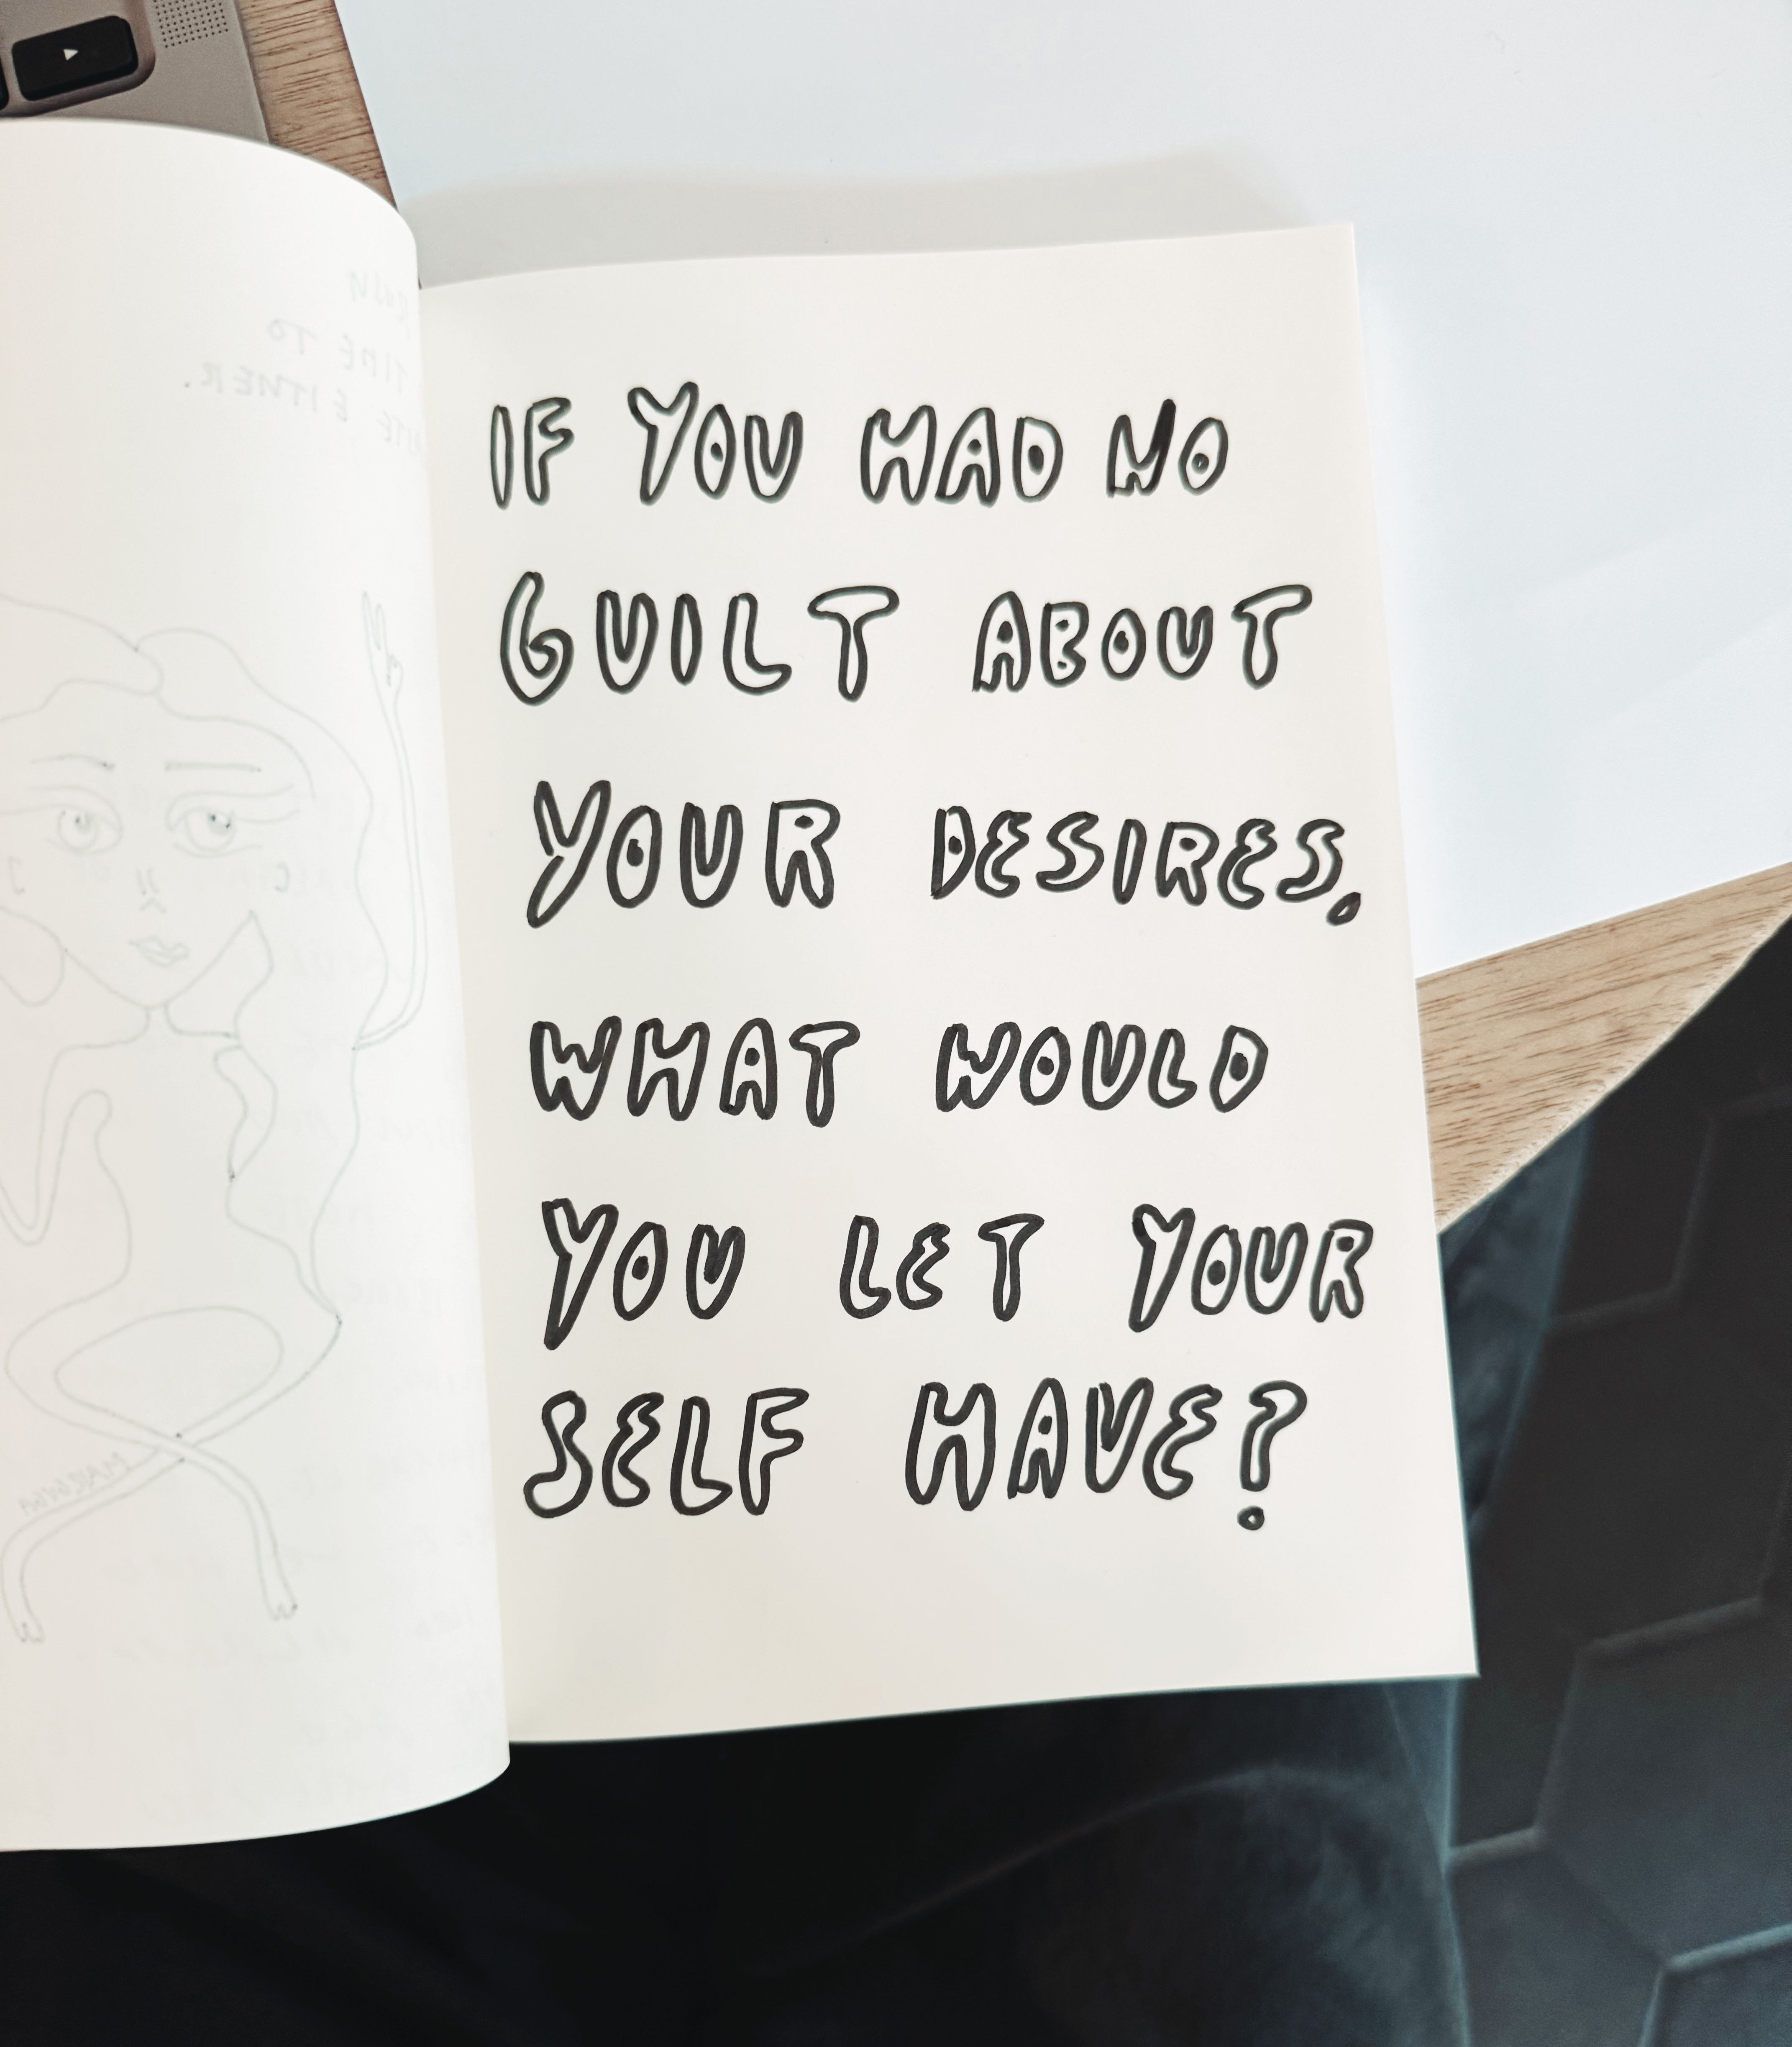 IF YOU HAD NO
GUILT ABOUT
YOUR DESIRES,
WHAT WOULD
YOU LET YOUR
SELF HAVE?